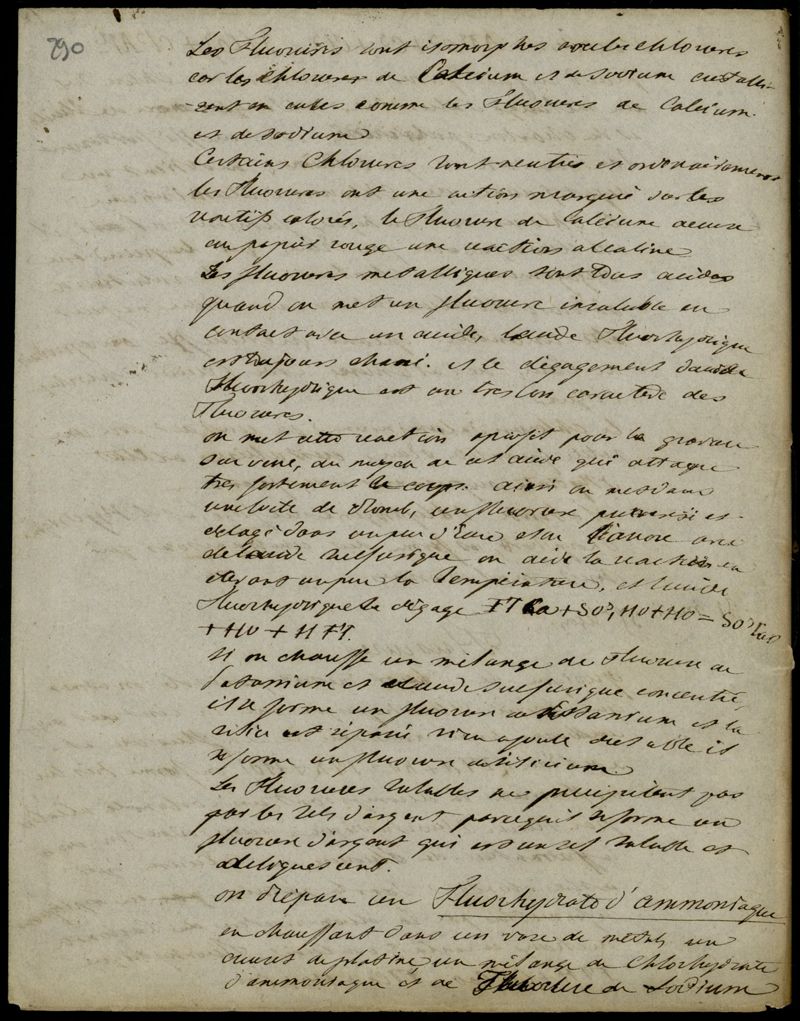 290
Les Fluorures sont isomorphes avec les chlorures
car les chlorures de Calcium et de sodium cristalli-
-sent en cubes comme les Fluorures de Calcium
et de sodium
Certains Chlorures sont neutres et ordinairement
les Fluorures ont une action marquée sur les
réactifs colorés, le Fluorure de Calcium accuse
au papier rouge une reaction alcaline
Les fluorures metalliques sont tous acides
quand on met un fluorure insoluble en
contact avec un acide, l'acide Fluorhydrique
est toujours et le dégagement d'acide
Fluorhydrique est un tres bon caractère des
Fluorures.
on met cette reaction à profit pour la gravure
sur verre, au moyen de cet acide qui attaque
tres fortement le corps. ainsi on met dans
une boite de Plomb, un fluorure et
delayé dans un peu d'Eau et on avec
de l'acide sulfurique on aide la reaction en
elevant un peu la Température, et l'acide
Fluorhydrique se dégage Fl Ca + SO³, HO + HO = SO³
+ HO + H Fl.
Si on chauffe un mélange de Fluorure de
Potassium et d'acide sulfurique concentré,
il se forme un fluorure de et la
silice est si on ajoute du sable il
se forme un fluorure de silicium
Les Fluorures solubles ne precipitent pas
par les sels d'argent parcequ'il se forme un
fluorure d'argent qui est un sel soluble et
deliquescent.
on prépare un Fluorhydrate d'ammoniaque
en chauffant dans un vase de metal, un
creuset de platine un mélange de Chlorhydrate
d'ammoniaque et de Fluorure de Sodium